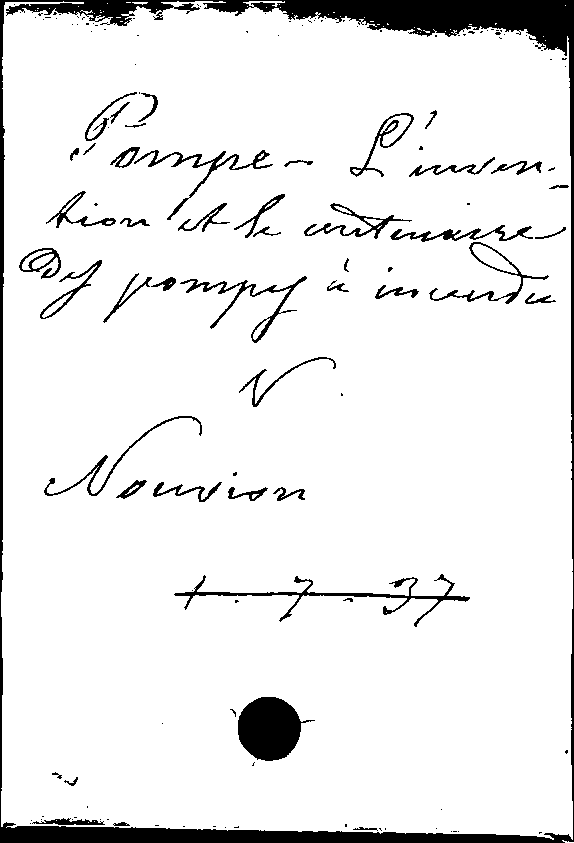 Pompe - L'inven-
tion et le centenaire
Des pompes à incendie
V.
Nouvion
1 . 7 . 37